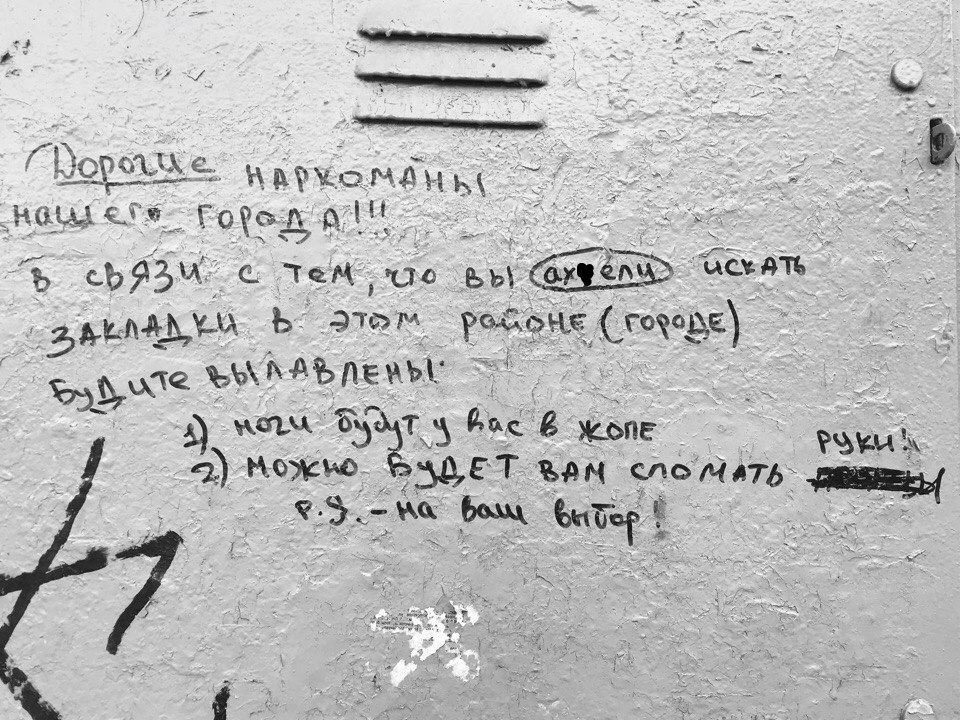 Дорогие НАРКОМАНЫ
нашего ГОРОДА!!!
В СВЯЗИ С ТЕМ, ЧТО ВЫ ах♥ели ИСКАТЬ
ЗАКЛАДКИ В ЭТОМ РАЙОНЕ (ГОРОДЕ)
БУДИТЕ ВЫЛАВЛЕНЫ:
1) НОГИ будут у Вас в ЖОПЕ
РУКИ!
2) МОЖНО БУДЕТ ВАМ СЛОМАТЬ
P.S. - на ваш выбор!